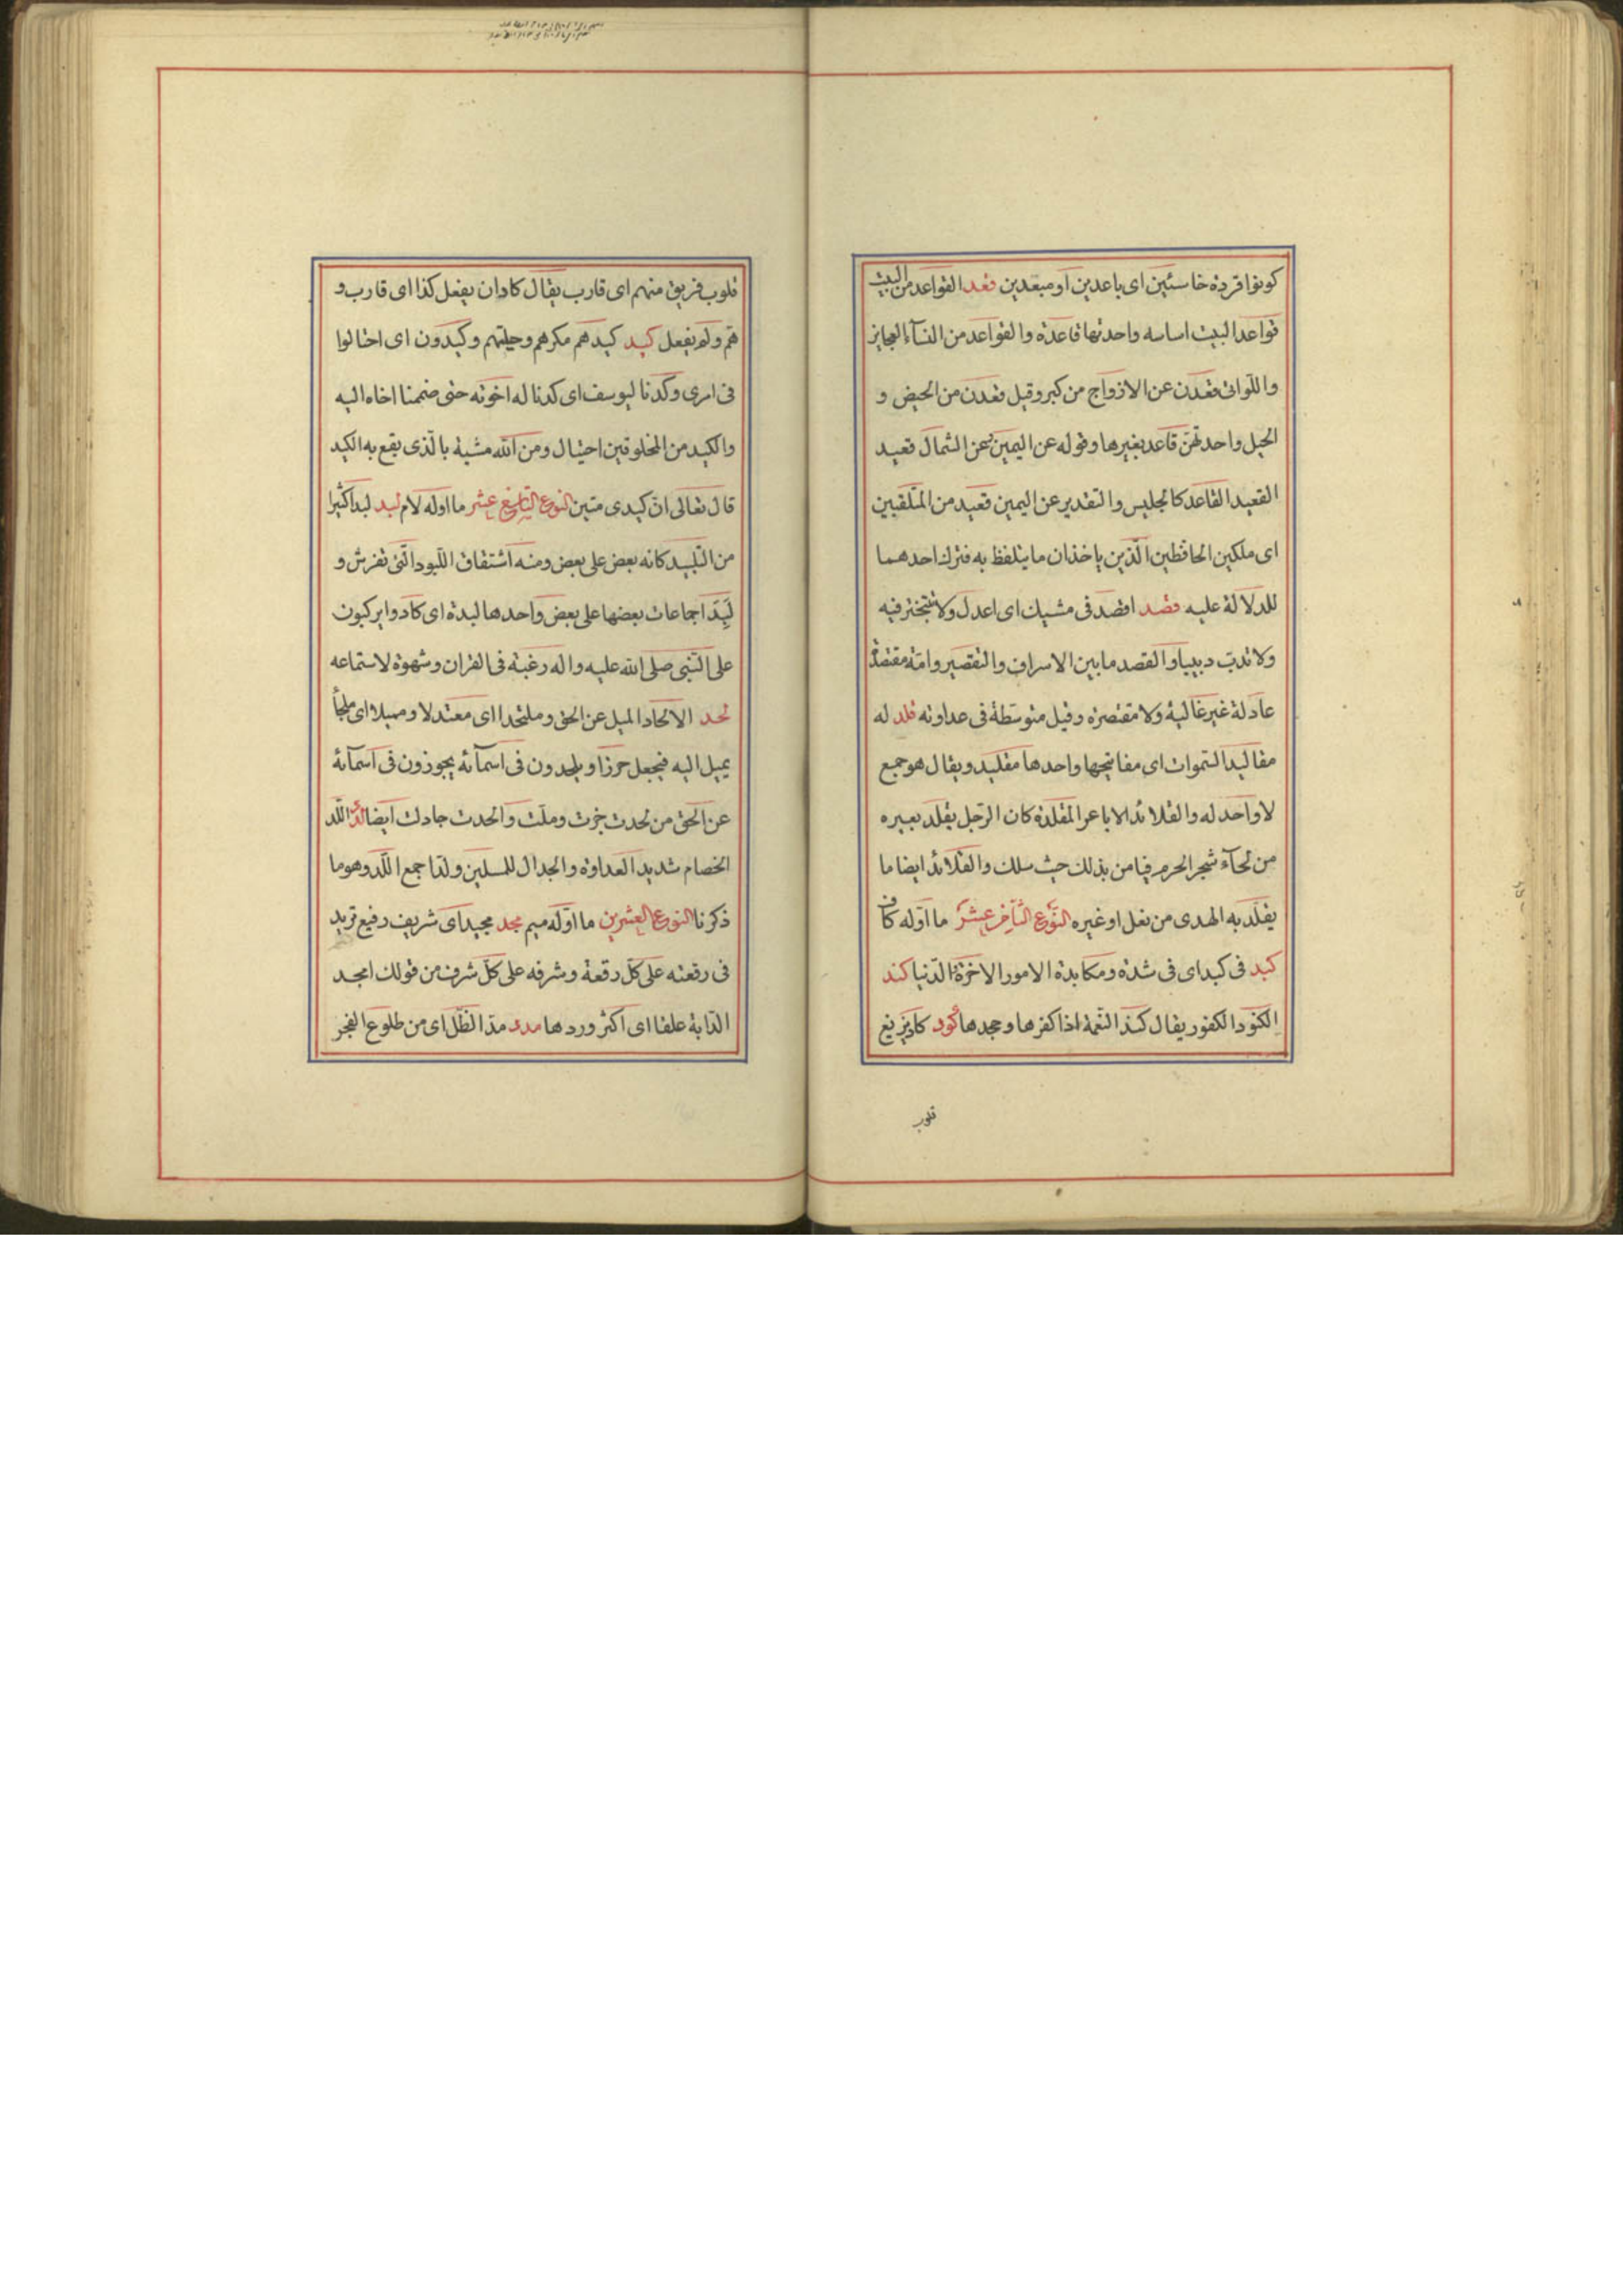 كونوا قردة خاسئين اى باعدين او مبعدين قعد القواعد من البيت
قواعد البيت اساسه واحدتها قاعدة والقواعد من النسآء العجايز
واللواتى قعدن عن الازواج من كبر وقيل قعدن من الحيض و
الحبل واحدتهنّ قاعد بغيرها وقوله عن اليمين وعن الشمال قعيد
القعيد القاعد كالجليس والتقدير عن اليمين قعيد من المتلقيين
اى ملكين الحافظين الّذين ياخذان ما يتلفظ به فترك احدهما
للدلالة عليه قصد اقصد فى مشيك اى اعدل ولا تتبختر فيه
ولا تدبّ دبيبا والقصد ما بين الاسراف والتقصير وامّة مقتصدة
عادلة غير غالية ولا مقتصرة وقيل متوسّطة فى عداوته قلد له
مقاليد السّموات اى مفاتيحها واحدها مقليد ويقال هو جمع
لا واحد له والقلائد الاباعر المقلدة كان الرّجل يقلّد بعيره
من لحآء شجر الحرم فيامن بذلك حيث سلك والقلائد ايضا ما
يقلّد به الهدى من نعل او غيره النّوع الثّامن عشر ما اوّله كاف
كبد فى كبد اى فى شدّة ومكابدة الامور الاخرة الدّنيا كند
الكنود الكفور يقال كند النّعمة اذا كفرها وجحدها كود كاد يزيغ
قلوب
قلوب فريق منهم اى قارب يقال كاد ان يفعل كذا اى قارب و
همّ ولم يفعل كيد كيدهم مكرهم وحيلتهم وكيدون اى احتالوا
فى امرى وكدنا ليوسف اى كدنا له اخوته حتى ضممنا اخاه اليه
والكيد من المخلوقين احتيال ومن الله مشية بالّذى يقع به الكيد
قال تعالى انّ كيدى متين النوع التاسع عشر ما اوله لام لبد لبدا كثيرا
من التّلبيد كانه بعض على بعض ومنه اشتقاق اللّبود الّتى تفرش و
لِبَدًا جماعات بعضها على بعض واحدها لبدة اى كادوا يركبون
على النّبى صلى الله عليه واله رغبة فى القران وشهوة لاستماعه
لحد الالحاد الميل عن الحق وملتحدا اى معتدلا ومميلا اى ملجأ
يميل اليه فيجعل حرزا ويلحدون فى اسمآئه يجوزون فى اسمآئه
عن الحق من لحدت جزت وملت والحدت جادلت ايضا لدد الدّ
الخصام شديد العداوة والجدال للمسلمين ولدّا جمع الدّ وهو ما
ذكرنا النوع العشرين ما اوّله ميم مجد مجيد اى شريف رفيع تزيد
فى رفعته على كلّ رفعة وشرفه على كلّ شرف من قولك امجد
الدّابة علفا اى اكثر وردها مدد مدّ الظّل اى من طلوع الفجر